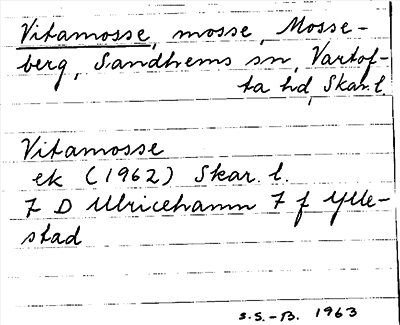 Vitamosse, mosse, Mosse-
berg, Sandhems sn, Vartof-
ta hd, Skar. l.
Vitamosse
ek (1962) Skar. l.
7 D Ulricehamn 7 f Ylle-
stad
S.S.-B. 1963